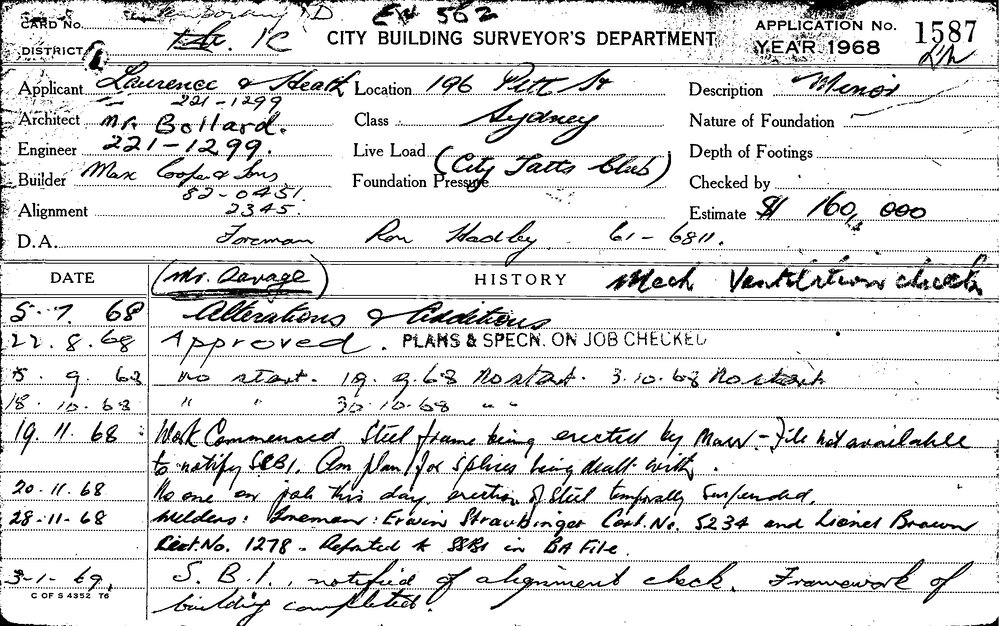 CARD NO.
Ex 562
DISTRICT
CITY BUILDING SURVEYOR'S DEPARTMENT
APPLICATION No. 1587
YEAR 1968
Applicant Laurence & Heath
221-1299
Location 196 Pitt St
Description Minor
Architect Mr. Bollard.
Class Sydney
Nature of Foundation
Engineer 221-1299.
Live Load (City Tatts Club)
Depth of Footings
Builder Max Cooper & Sons
82-0451.
Foundation Pressure
Checked by
Alignment 2345.
Estimate $ 160,000
D.A. Foreman Ron Hadley. 61-6811.
DATE (Mr. Savage) HISTORY Mech Ventilation check
5.7.68 Alterations & Additions
22.8.68 Approved. PLANS & SPECN. ON JOB CHECKED
5.9.68 no start. 19.9.68 No start. 3.10.68 No start
18.10.68 " " 30.10.68 " "
19.11.68 Work Commenced. Steel frame being erected by - File not available
to notify SSBI. plan for splices being dealt with.
20.11.68 No one on job this day, erection of Steel temporally suspended.
28-11-68 Welders: Foreman: Erwin Straubinger Cert. No. 5234 and Lionel Brown
Cert. No. 1278 - Reported to SSBI in BA File.
3-1-69. S.B.I., notified of alignment check. Framework of
building completed.
C OF S 4352 T6